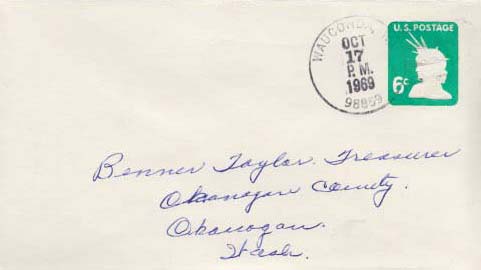 U.S. POSTAGE
6c
WAUCONDA,
OCT
17
P.M.
1969
98859
Benner Taylor. Treasurer
Okanogan County.
Okanogan.
Wash.